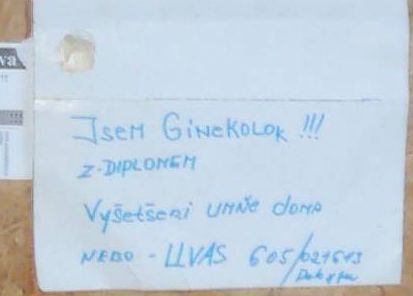 va
JSEM GINEKOLOK !!!
Z-DIPLOMEM
VYŠETŠENI UMŇE DOMA
NEBO - UVAS 605/021613